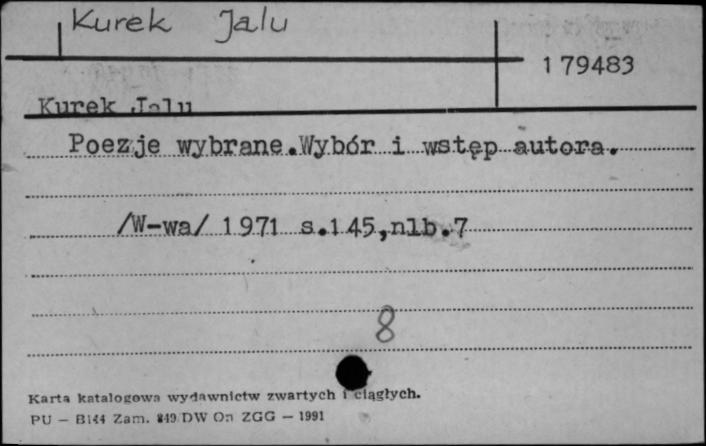 Kurek Jalu
179483
Kurek Jalu
Poezje wybrane.Wybór i wstęp autora.
/W-wa/ 1971 s.145,nlb.7
8
Karta katalogowa wydawnictw zwartych i ciągłych.
PU — B144 Zam. 849 DW On ZGG — 1991